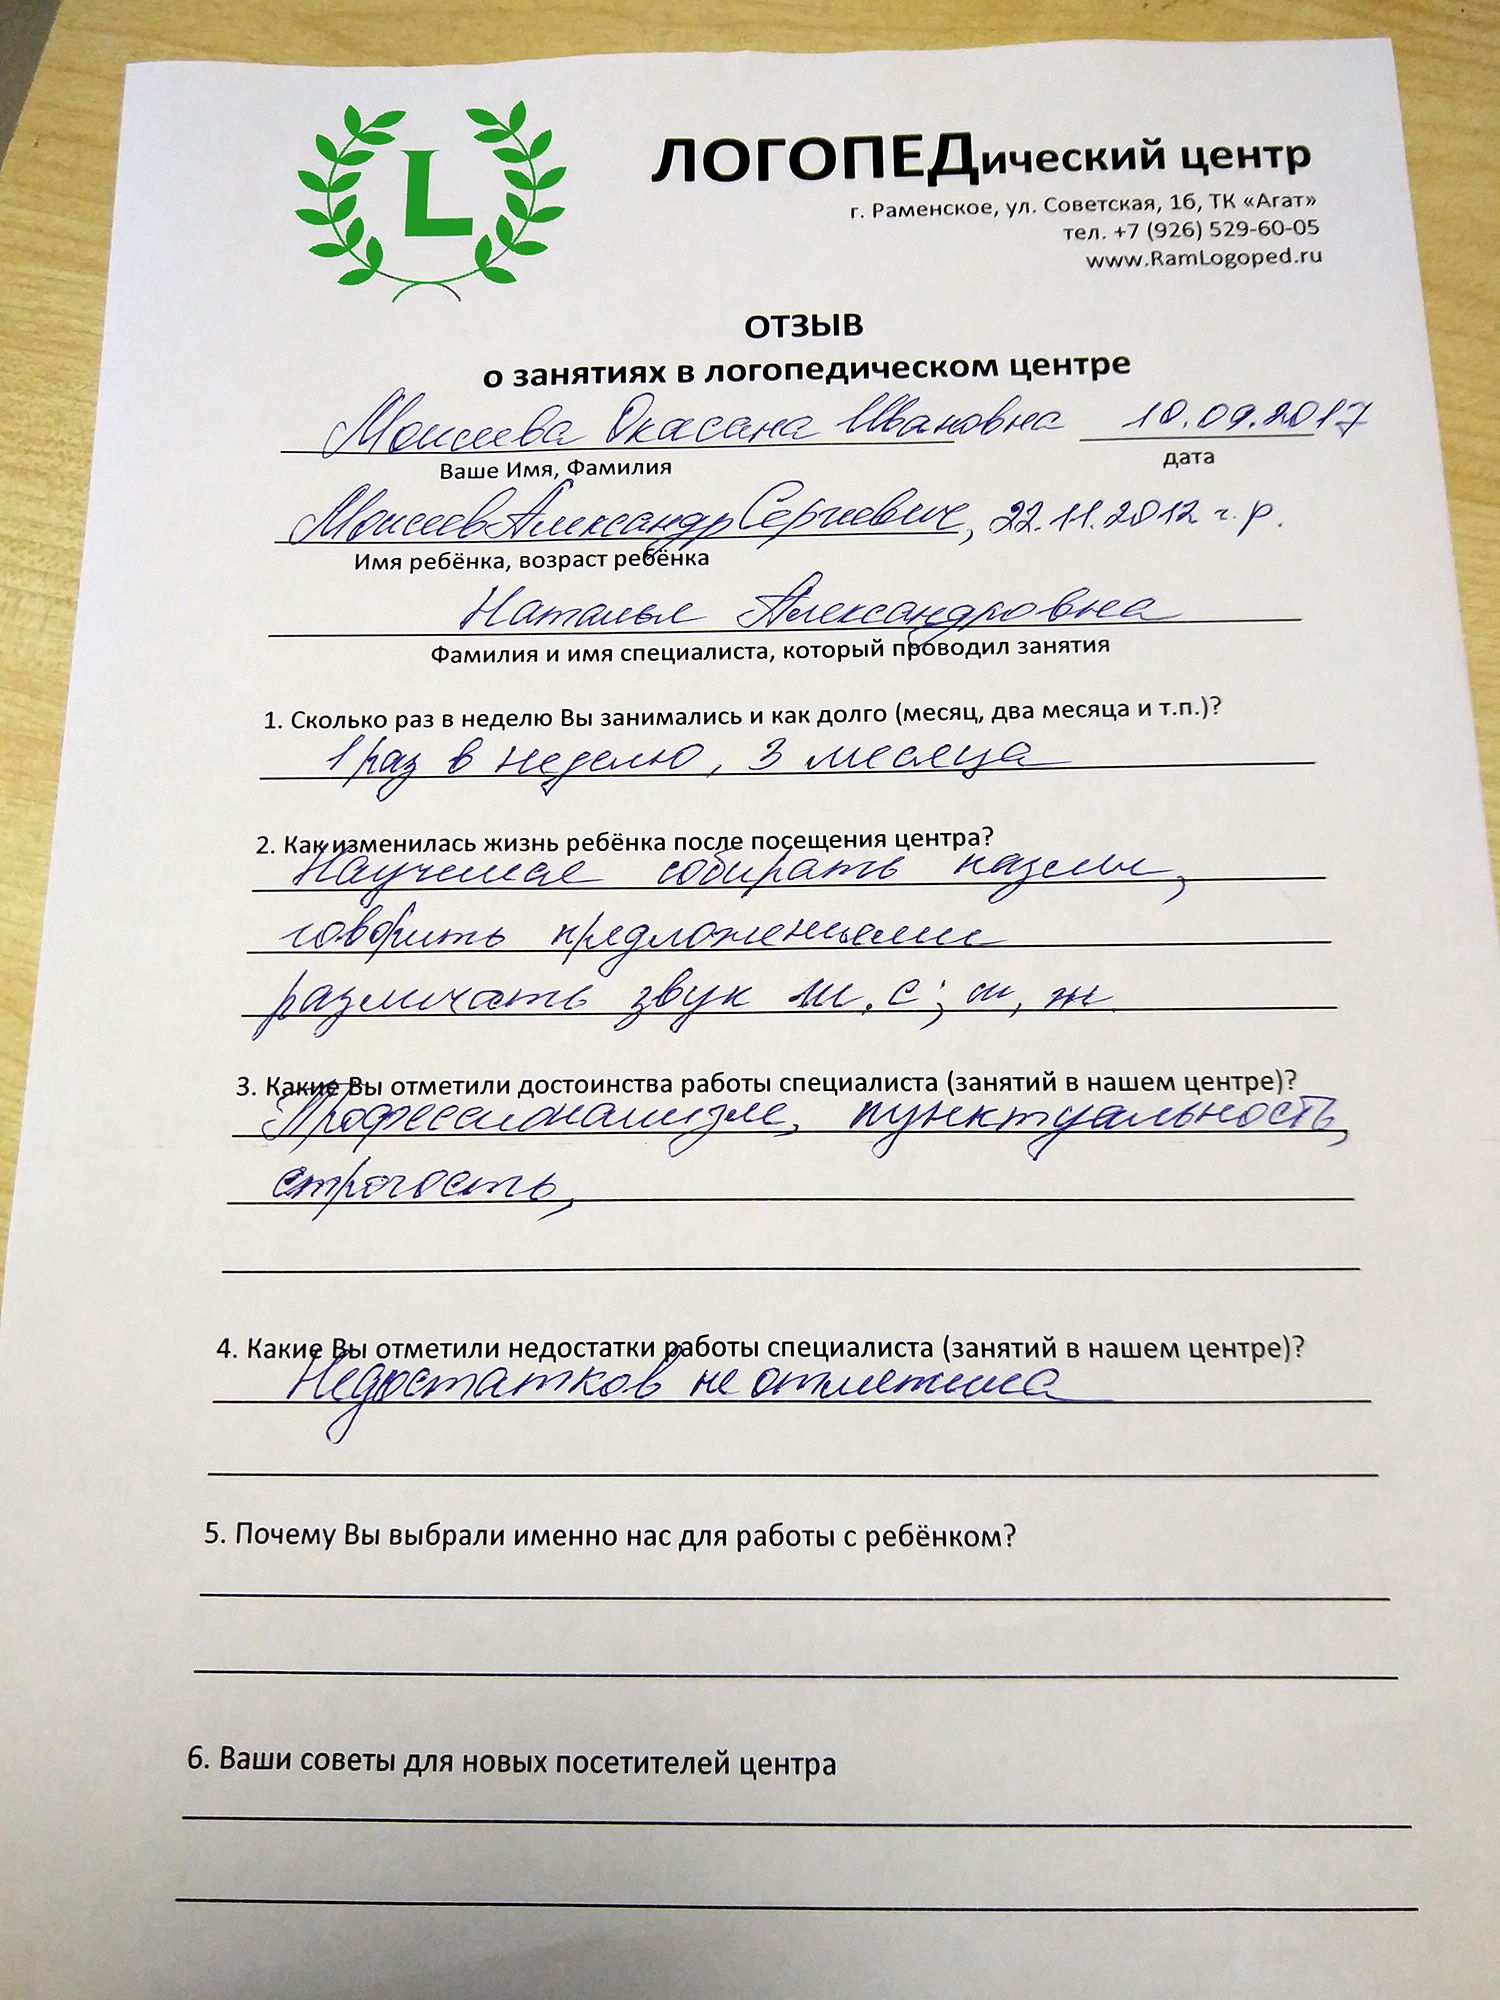 L
ЛОГОПЕДический центр
г. Раменское, ул. Советская, 16, ТК «Агат»
тел. +7 (926) 529-60-05
www.RamLogoped.ru
ОТЗЫВ
о занятиях в логопедическом центре
Моисеева Окасана Ивановна 10.09.2017
Ваше Имя, Фамилия дата
Моисеев Александр Сергиевич, 22.11.2012 г.р.
Имя ребёнка, возраст ребёнка
Наталья Александровна
Фамилия и имя специалиста, который проводил занятия
1. Сколько раз в неделю Вы занимались и как долго (месяц, два месяца и т.п.)?
1 раз в неделю, 3 месяца
2. Как изменилась жизнь ребёнка после посещения центра?
Научился собирать пазлы,
говорить предложениями
различать звук ш, с; ш, ж
3. Какие Вы отметили достоинства работы специалиста (занятий в нашем центре)?
Профессионализм, пунктуальность,
строгость,
4. Какие Вы отметили недостатки работы специалиста (занятий в нашем центре)?
Недостатков не отметила
5. Почему Вы выбрали именно нас для работы с ребёнком?
6. Ваши советы для новых посетителей центра